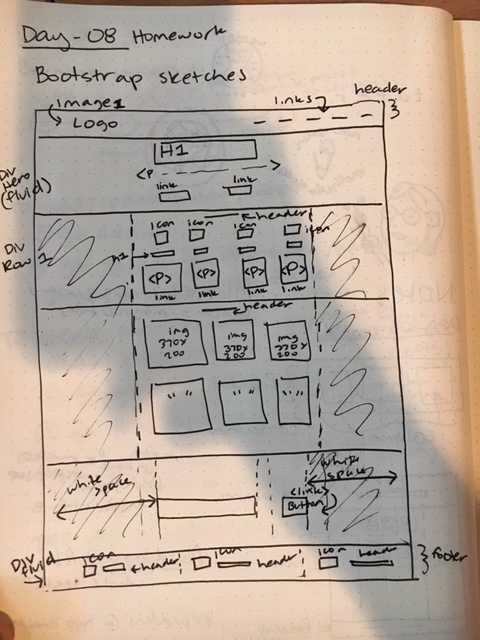 Day-08 Homework
Bootstrap sketches
image1
links
header
Logo
H1
<P - - - >
link link
Div Hero (fluid)
header
icon icon icon icon
Div Row 1
h1
<P> <P> <P> <P>
link link link link
header
img 370x200 img 370x200 img 370x200
" " " " " "
white space
white space
<link>
Button
Div fluid
icon header icon header icon header
footer